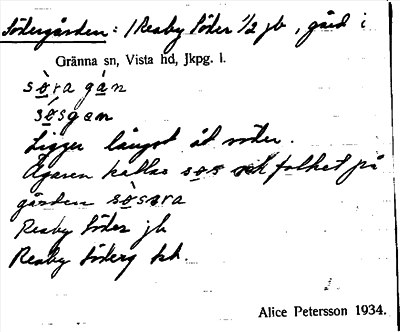 Södergården: 1 Reaby Söder 1/2 jb, gård i
Gränna sn, Vista hd, Jkpg. l.
sò̱ra gá̱n
só̱sgan
Ligger längst åt söder.
Ägaren kallas so̱s och folket på
gården sò̱sara
Reaby Söder jb
Reaby Söderg kbk.
Alice Petersson 1934.